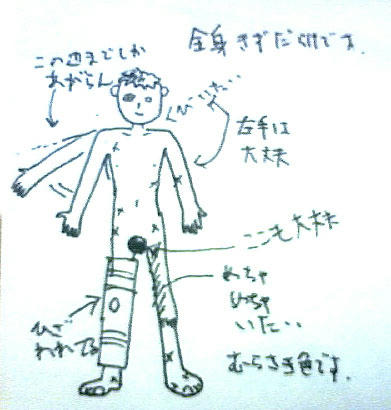 全身きずだらけです。
この辺までしか
あがらん
いたい…
左手は
大丈夫
ここも大丈夫
めちゃ
めちゃ
いたい…
ひざ
われてる
むらさき色です。